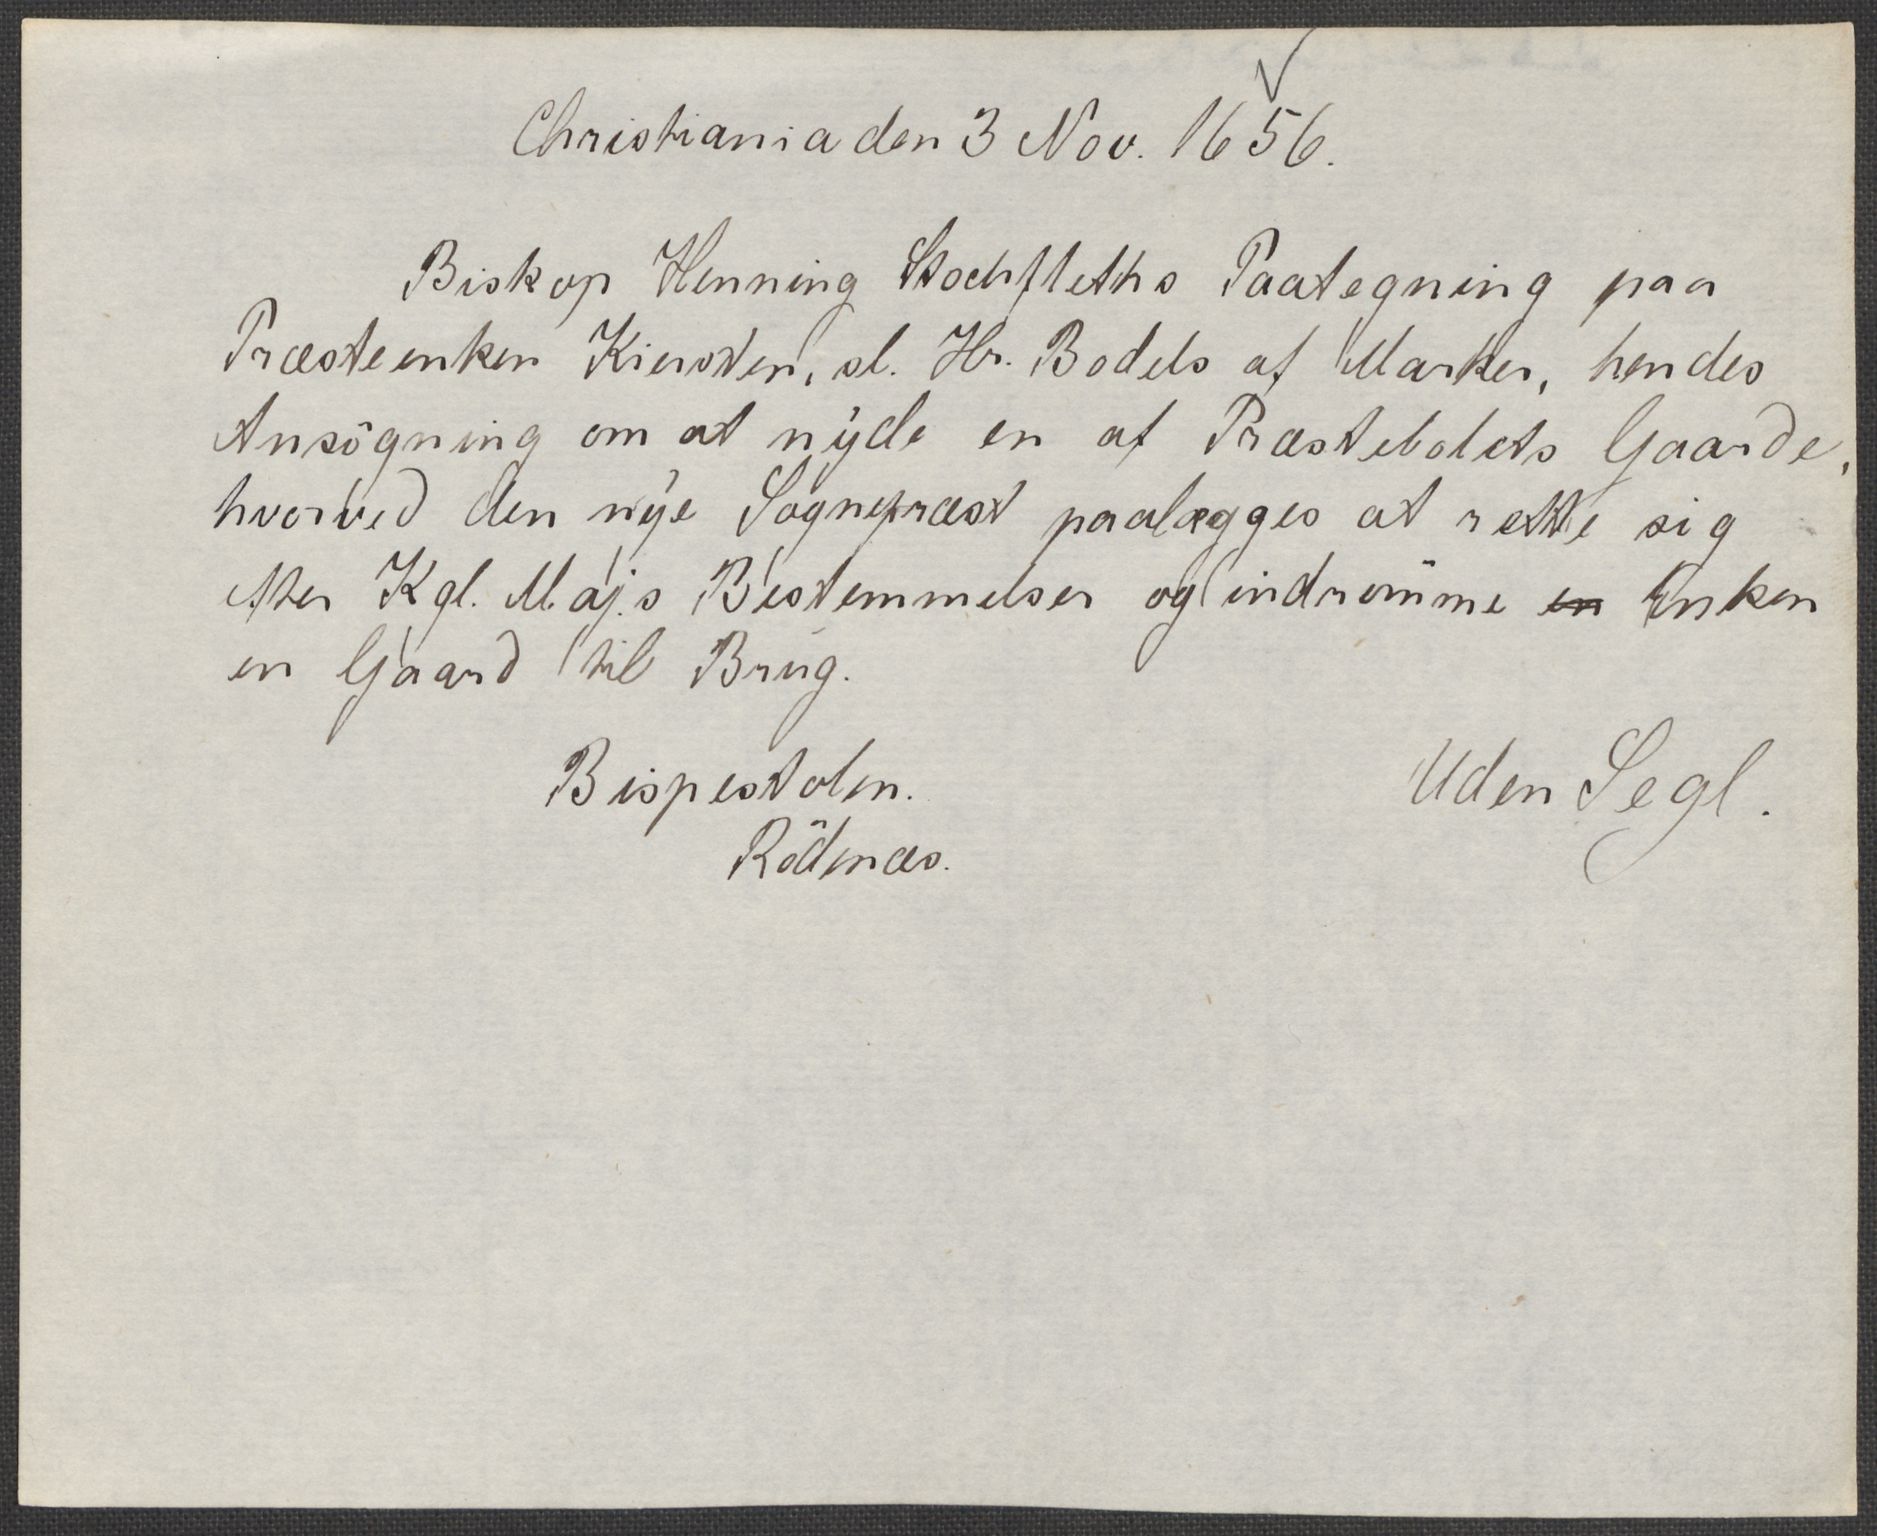 Christiania den 3 Nov. 1656.
Biskop Henning Stochfleths Paategning paa
Præsteenken Kiersten, sl. Hr. Bodels af Marker, hendes
Ansögning om at nyde en af Præstebolets Gaarde,
hvorved den nye Sognepræst paalægges at rette sig
efter Kgl. Maj.s Bestemmelser og indrømme en Enken
en Gaard til Brug.
Bispestolen.
Uden Segl.
Rödenæs.